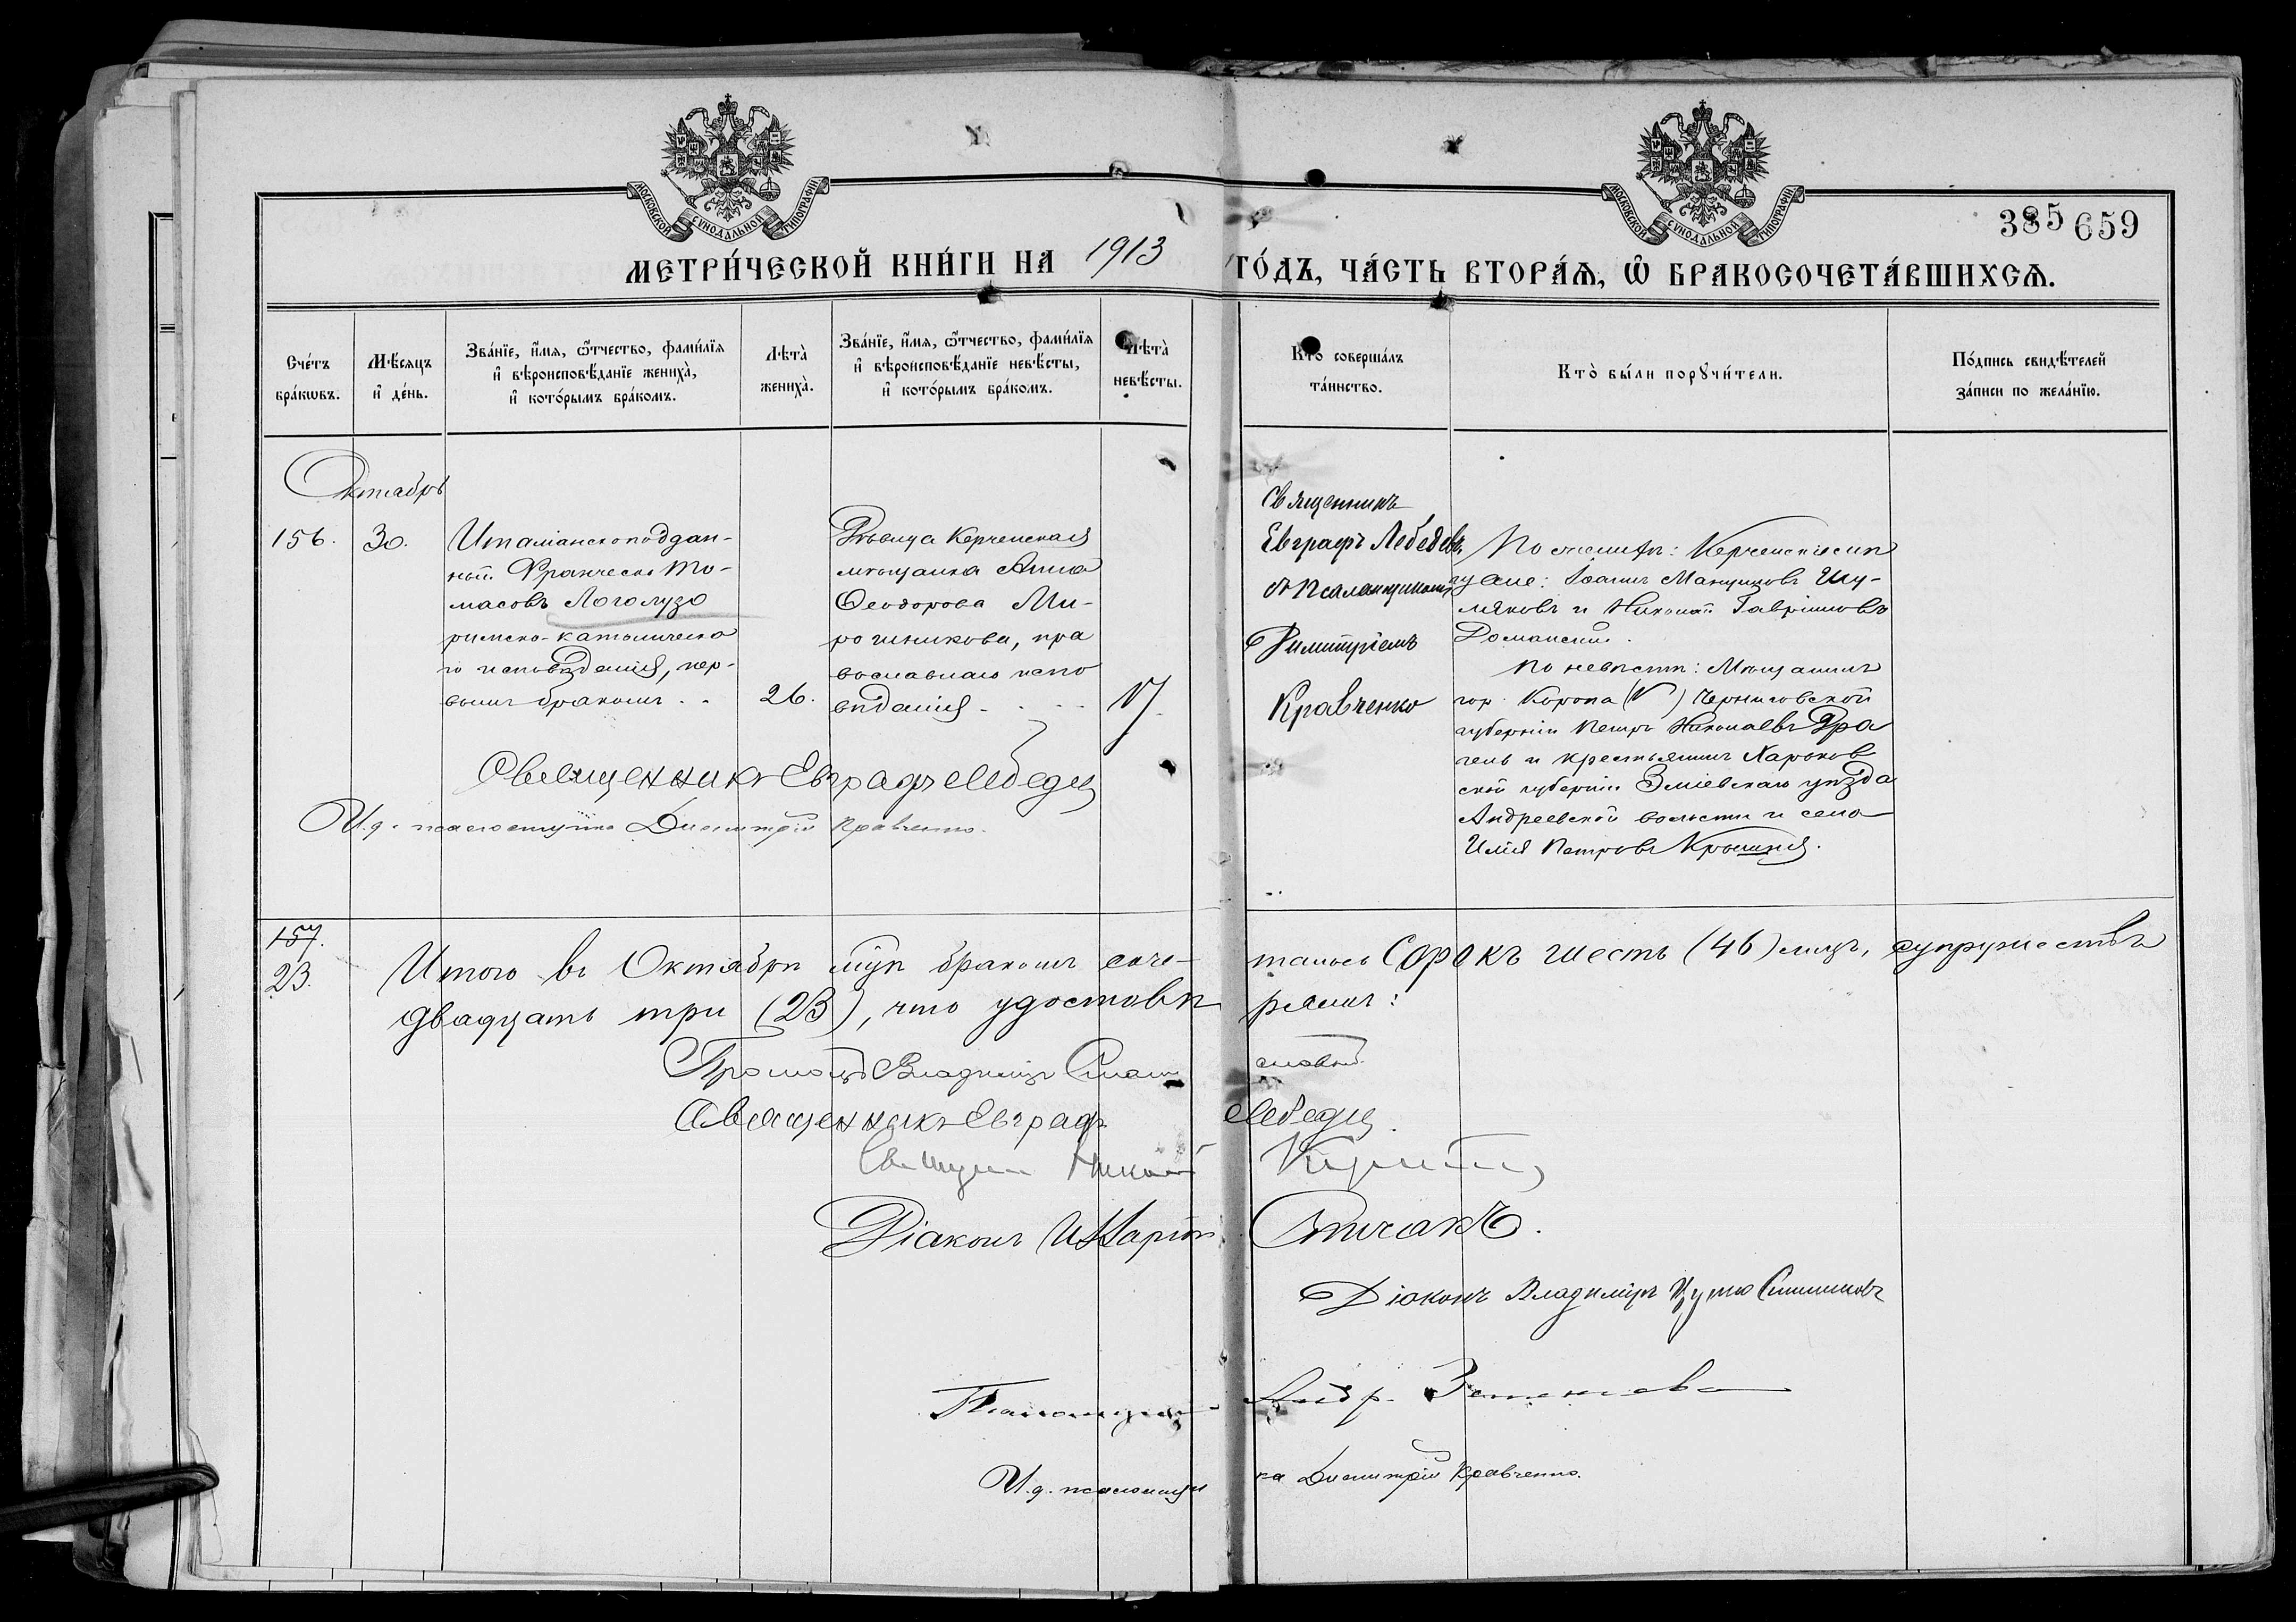 МОСКОВСКОЙ СѴНОДАЛЬНОЙ ТИПОГРАФІИ
МОСКОВСКОЙ СѴНОДАЛЬНОЙ ТИПОГРАФІИ
385 659
МЕТРИ́ЧЕСКОЙ КНИ́ГИ НА 1913 ГО́ДЪ, ЧА́СТЬ ВТОРА́Ѧ, Ѿ БРАКОСОЧЕТА́ВШИХСѦ.
Сче́тъ
бра́кѡвъ.
Мѣ́сяцъ
и҆ де́нь.
Зва́нїе, и҆́мѧ, ѻ҆́тчество, фами́лїѧ
и҆ вѣроисповѣ́данїе жениха̀,
и҆ кото́рымъ бра́комъ.
Лѣ́та̀
жениха̀.
Зва́нїе, и҆́мѧ, ѻ҆́тчество, фами́лїѧ
и҆ вѣроисповѣ́данїе невѣ́сты,
и҆ кото́рымъ бра́комъ.
Лѣ́та̀
невѣ́сты.
Кто̀ соверша́лъ
та́инство.
Кто̀ бы́ли порꙋчи́тели.
По́дпись свидѣ́телей
за́писи по жела́нїю.
Октябрь
156.
30.
Итальянскоподдан-
ный Франческо То-
масовъ Логолузо
римско-католическа
го исповѣданія, пер-
вымъ бракомъ . .
26.
Дѣвица Керченская
мѣщанка Анна
Ѳеодорова Ми-
рошникова, пра
вославнаго испо
вѣданія
17
Священникъ
Евграфъ Лебедевъ
съ псаломщикомъ
Димитріемъ
Кравченко
По женихѣ: Керченскіе мѣ
щане: Іоаннъ
и Николай Гавріиловъ
Романскій.
По невѣстѣ: Мѣщанинъ
гор. Коропа (№) Черниговской
губерніи Петръ Николаевъ
и крестьянинъ Харьков
ской губерніи Зміевскаго уѣзда
Андреевской волости и села
Илія Петровъ
Священникъ Евграфъ Лебедев
И.д. псаломщика Димитрій Кравченко.
157.
23.
Итого въ Октябрѣ м-цѣ бракомъ соче-
талось Сорокъ шесть (46) лицъ, супружествъ
двадцать три (23), что удостовѣ
ряемъ:
Протоіерей Владиміръ
Священникъ Евграфъ Лебедев.
Священн. Николай
Діаконъ Иларіонъ
Діаконъ Владиміръ
Псаломщик Андр.
И.д. псаломщи
ка Димитрій Кравченко.